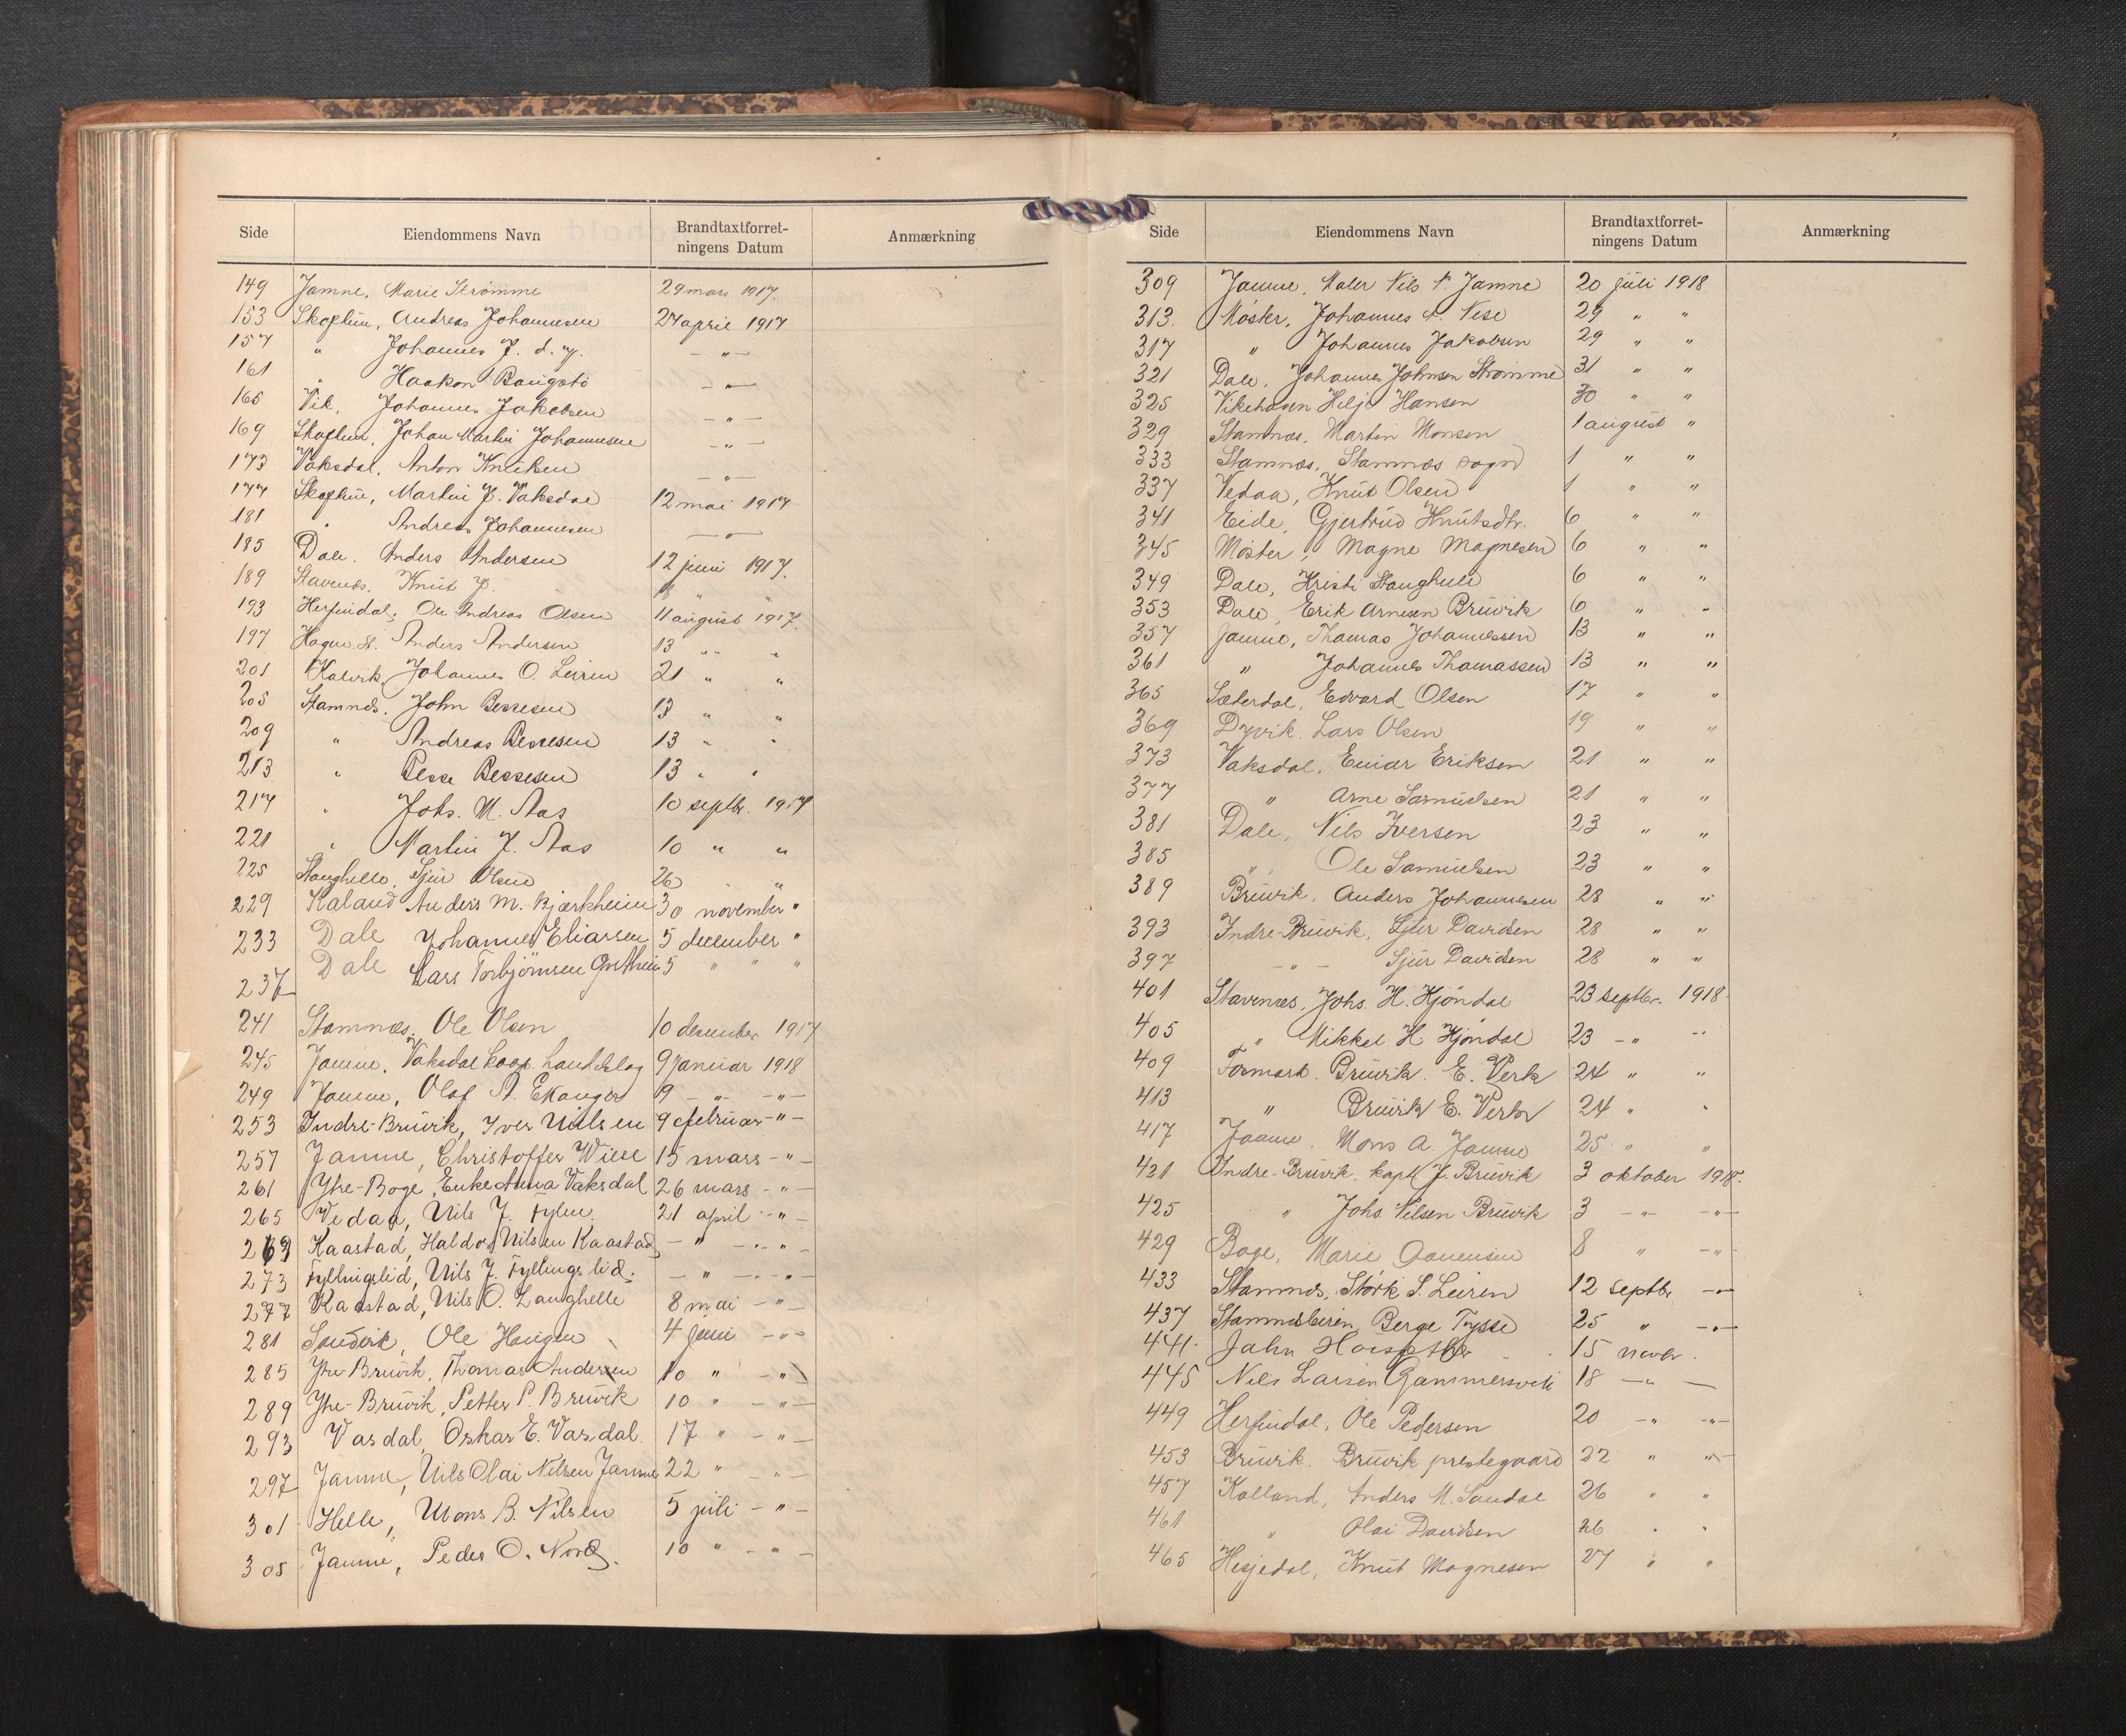 Side Eiendommens Navn Brandtaxtforret-ningens Datum Anmærkning
149 Jamne, Marie Strømme 29 mars 1917.
153 Skoftun, Andreas Johannesen 27 april 1917
157 " Johannes J. d. y. — " —
161 " Haakon Baugstø — " —
165 Vik, Johannes Jakobsen — " —
169 Skoftun, Johan Martin Johannesen — " —
173 Vaksdal, Anton Knutsen — " —
177 Skoftun, Martin J. Vaksdal 12 mai 1917
181 " Andreas Johannesen — " —
185 Dale. Anders Andersen 12 juni 1917.
189 Stavenes, Knut J. " "
193 Herfindal, Ole Andreas Olsen 11 august 1917.
197 Anders Andersen 13 " "
201 Kalvik, Johannes O. Leiren 21 " "
205 Stamnes. John Bessesen 13 " "
209 " Andreas Bessesen 13 " "
213 " Besse Bessesen 13 " "
217 " Johs. M. Aas 10 septbr. 1917
221 " Martin J. Aas 10 " "
225 Stanghelle, Sjur Olsen 26 " "
229 Kaland Anders M. Bjørkheim 30 november "
233 Dale Johannes Eliassen 5 december "
237 Dale Lars Torbjörnsen 5 " " "
241 Stamnes, Ole Olsen 10 desember 1917
245 Jamne, Vaksdal Koop. Handelslag 9 januar 1918
249 Jamne, Olaf A. Ekanger 9 — " — — " —
253 Indre-Bruvik, Iver Nilsen 9 februar — " —
257 Jamne, Christoffer Wiele 15 mars — " —
261 Ytre-Boge, Enke Anna Vaksdal 26 mars — " —
265 Vedaa, Nils J. 21 april — " —
269 Kaastad, Haldor Nilsen Kaastad — " — — " —
273 Fyllingslid, Nils J. Fyllingslid. — " — — " —
277 Kaastad, Nils O. Langhelle 8 mai — " —
281 Sandvik, Ole Haugen 4 juni — " —
285 Ytre-Bruvik, Thomas Andersen 10 " — " —
289 Ytre-Bruvik, Petter P. Bruvik 10 " — " —
293 Vasdal, Oskar E. Vasdal 17 " — " —
297 Jamne, Nils Olai Nilsen Jamne 22 " — " —
301 Helle, Mons B. Nilsen 5 juli — " —
305 Jamne, Peder O. Nord. 10 " — " —
Side Eiendommens Navn Brandtaxtforret-ningens Datum Anmærkning
309 Jamne, Maler Nils N. Jamne 20 juli 1918
313. Møster, Johannes N. Vese 29 " "
317 " Johannes Jakobsen 29 " "
321 Dale, Johannes Johnsen Strømme 31 " "
325 Vikehagen Helje Hansen 30 " "
329 Stamnæs, Martin Monsen 1 august "
333 Stamnæs, Stamnæs sogn 1 " "
337 Vedaa, Knut Olsen 1 " "
341 Eide, Gjertrud Knutsdtr. 6 " "
345 Møster, Magne Magnesen 6 " "
349 Dale, Kristi Stanghelle 6 " "
353 Dale, Erik Arnesen Bruvik 6 " "
357 Jamne, Thomas Johannessen 13 " "
361 " Johannes Thomassen 13 " "
365 Sæterdal, Edvard Olsen 17 " "
369 Dyvik. Lars Olsen 19 " "
373 Vaksdal, Einar Eriksen 21 " "
377 " Arne Samuelsen 21 " "
381 Dale, Nils Iversen 23 " "
385 " Ole Samuelsen 23 " "
389 Bruvik, Anders Johannesen 28 " "
393 Indre-Bruvik, Sjur Davidsen 28 " "
397 — " — Sjur Davidsen 28 " "
401 Stavenes, Johs. H. Hjöndal 23 septbr. 1918.
405 " Mikkel H. Hjöndal 23 — " — "
409 Fosmark. Bruvik E. Verk 24 " "
413 " Bruvik E. Verk 24 " "
417 Jamne. Mons A. Jamne 25 " "
421 Indre-Bruvik, kapt. J. Bruvik 3 oktober 1918.
425 " Johs Nilsen Bruvik 3 — " — — " —
429 Boge, Marie 8 " — " —
433 Stamnes, Størk S. Leiren 12 septbr. — " —
437 Stamnesleiren, Berge Tysse 25 " — " —
441. John 15 novbr.
445 Nils Larsen Gammersvik 18 — " —
449 Herfindal, Ole Pedersen 20 — " — " —
453 Bruvik. Bruvik prestegaard 22 " — " —
457 Kalland, Anders M. Sandal 26 " "
461 " Olai Davidsen 26 " "
465 Hesjedal, Knut Magnesen 27 " "